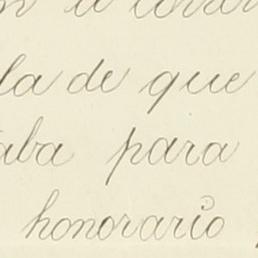 da de que
aba para
honorario